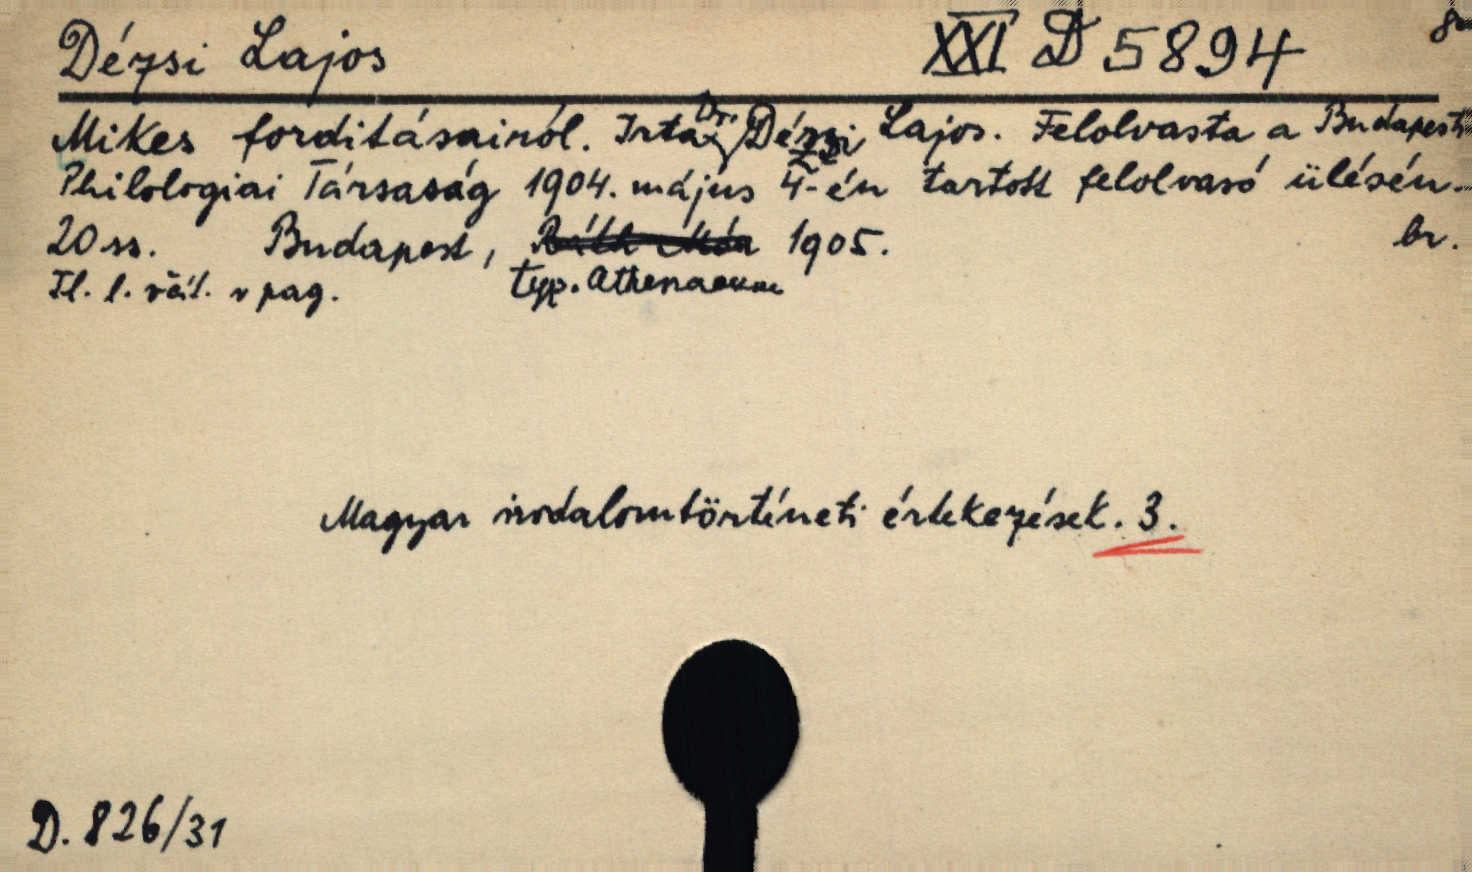 Dézsi Lajos XXI D 5894 8°
Mikes forditásairól. Irta Dr. Dézsi Lajos. Felolvasta a Budapesti
Philologiai Társaság 1904. május 4-én tartott felolvasó ülésén.
20 ss. Budapest, 1905. br.
Tl. l. váz. v pag. typ. Athenaeum
Magyar irodalomtörténeti értekezések. 3.
D. 826/31